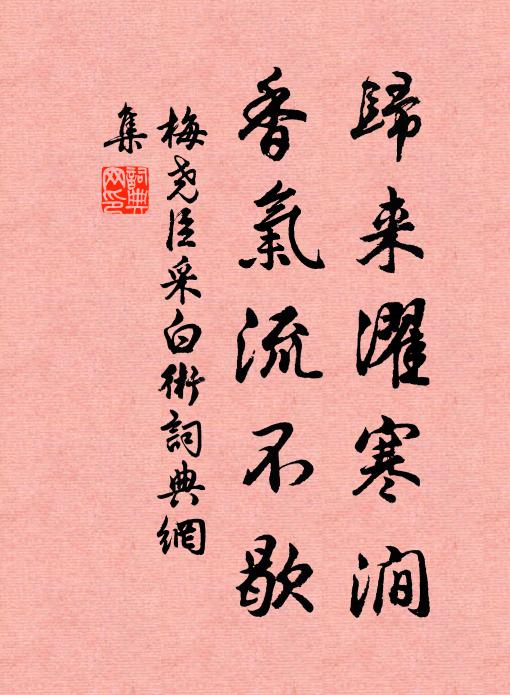 歸来濯寒澗
香氣流不歇
梅尧臣采白術詞典網
集
詞典網印